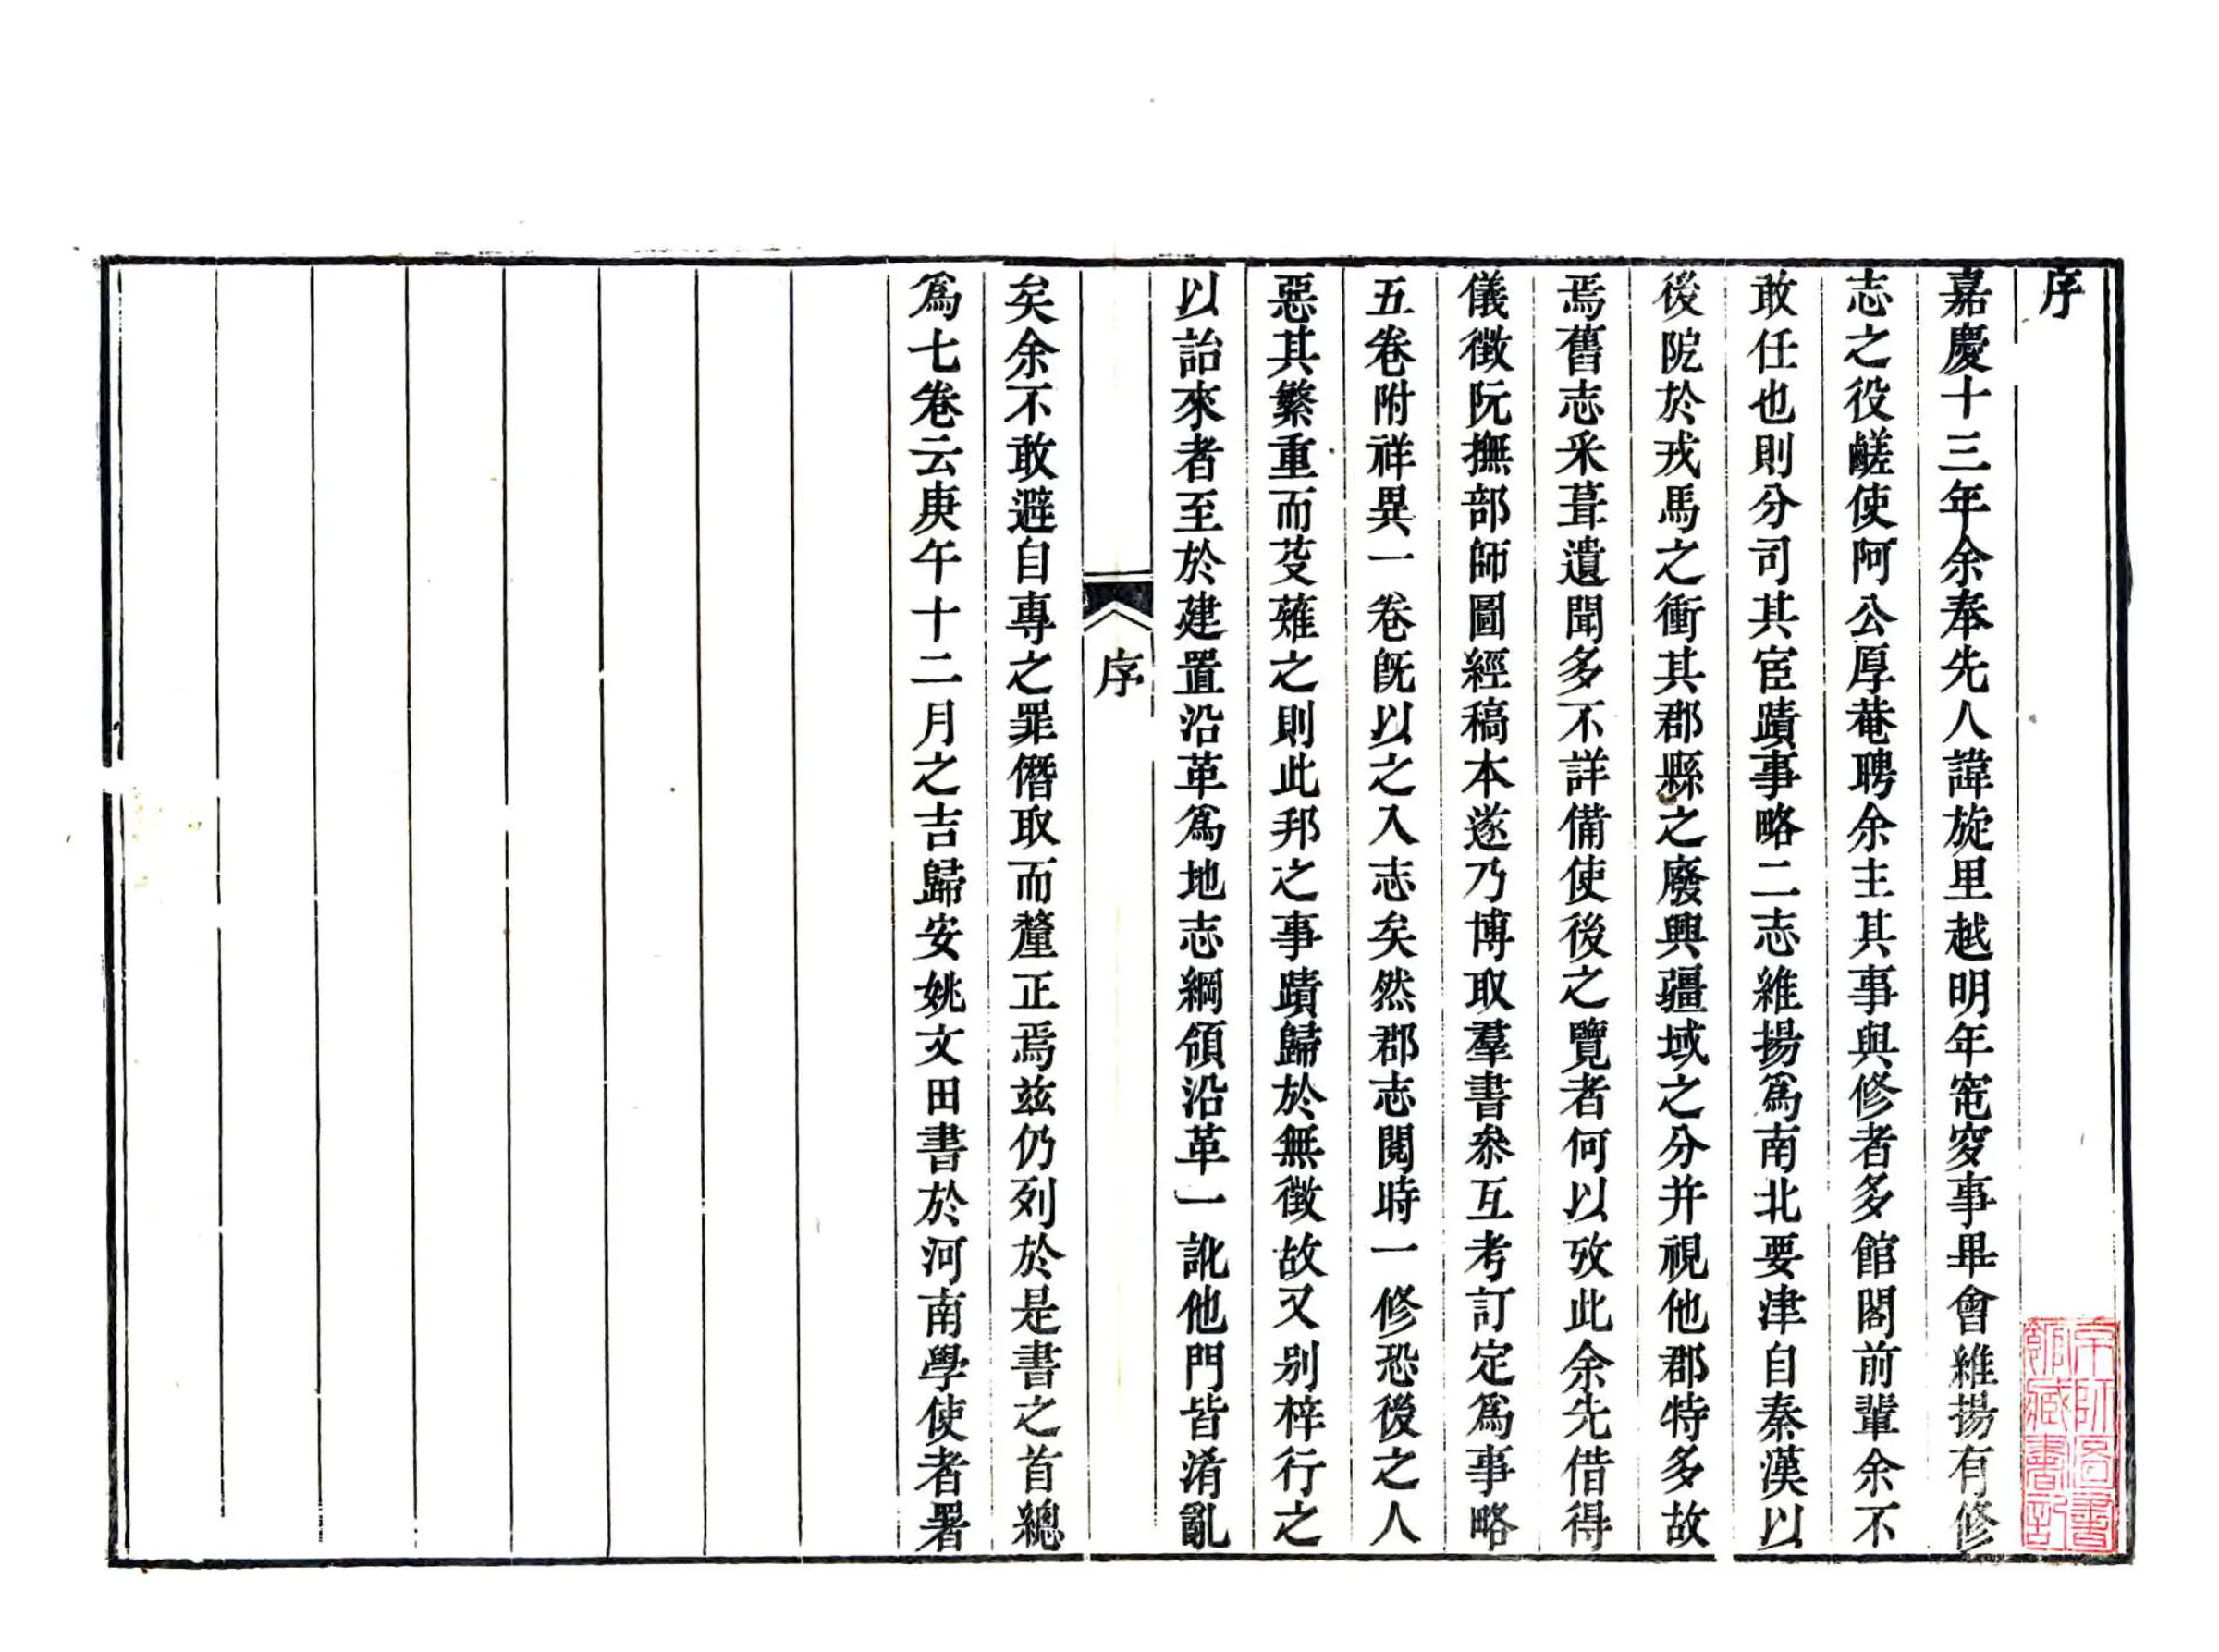 序
嘉慶十三年余奉先人諱旋里越明年窀穸事畢會維揚有修
志之役鹺使阿公厚菴聘余主其事與修者多館閣前輩余不
敢任也則分司其宦蹟事略二志維揚爲南北要津自秦漢以
後阸於戎馬之衝其郡縣之廢興疆域之分并視他郡特多故
焉舊志釆葺遺聞多不詳備使後之覽者何以攷此余先借得
儀徵阮撫部師圖經稿本遂乃博取羣書叅互考訂定爲事略
五卷附祥異一卷旣以之入志矣然郡志閱時一修恐後之人
惡其繁重而芟薙之則此邦之事蹟歸於無徵故又別梓行之
以詒來者至於建置沿革爲地志綱領沿革一訛他門皆淆亂
序
矣余不敢避自專之罪僭取而釐正焉兹仍列於是書之首總
爲七卷云庚午十二月之吉歸安姚文田書於河南學使者署